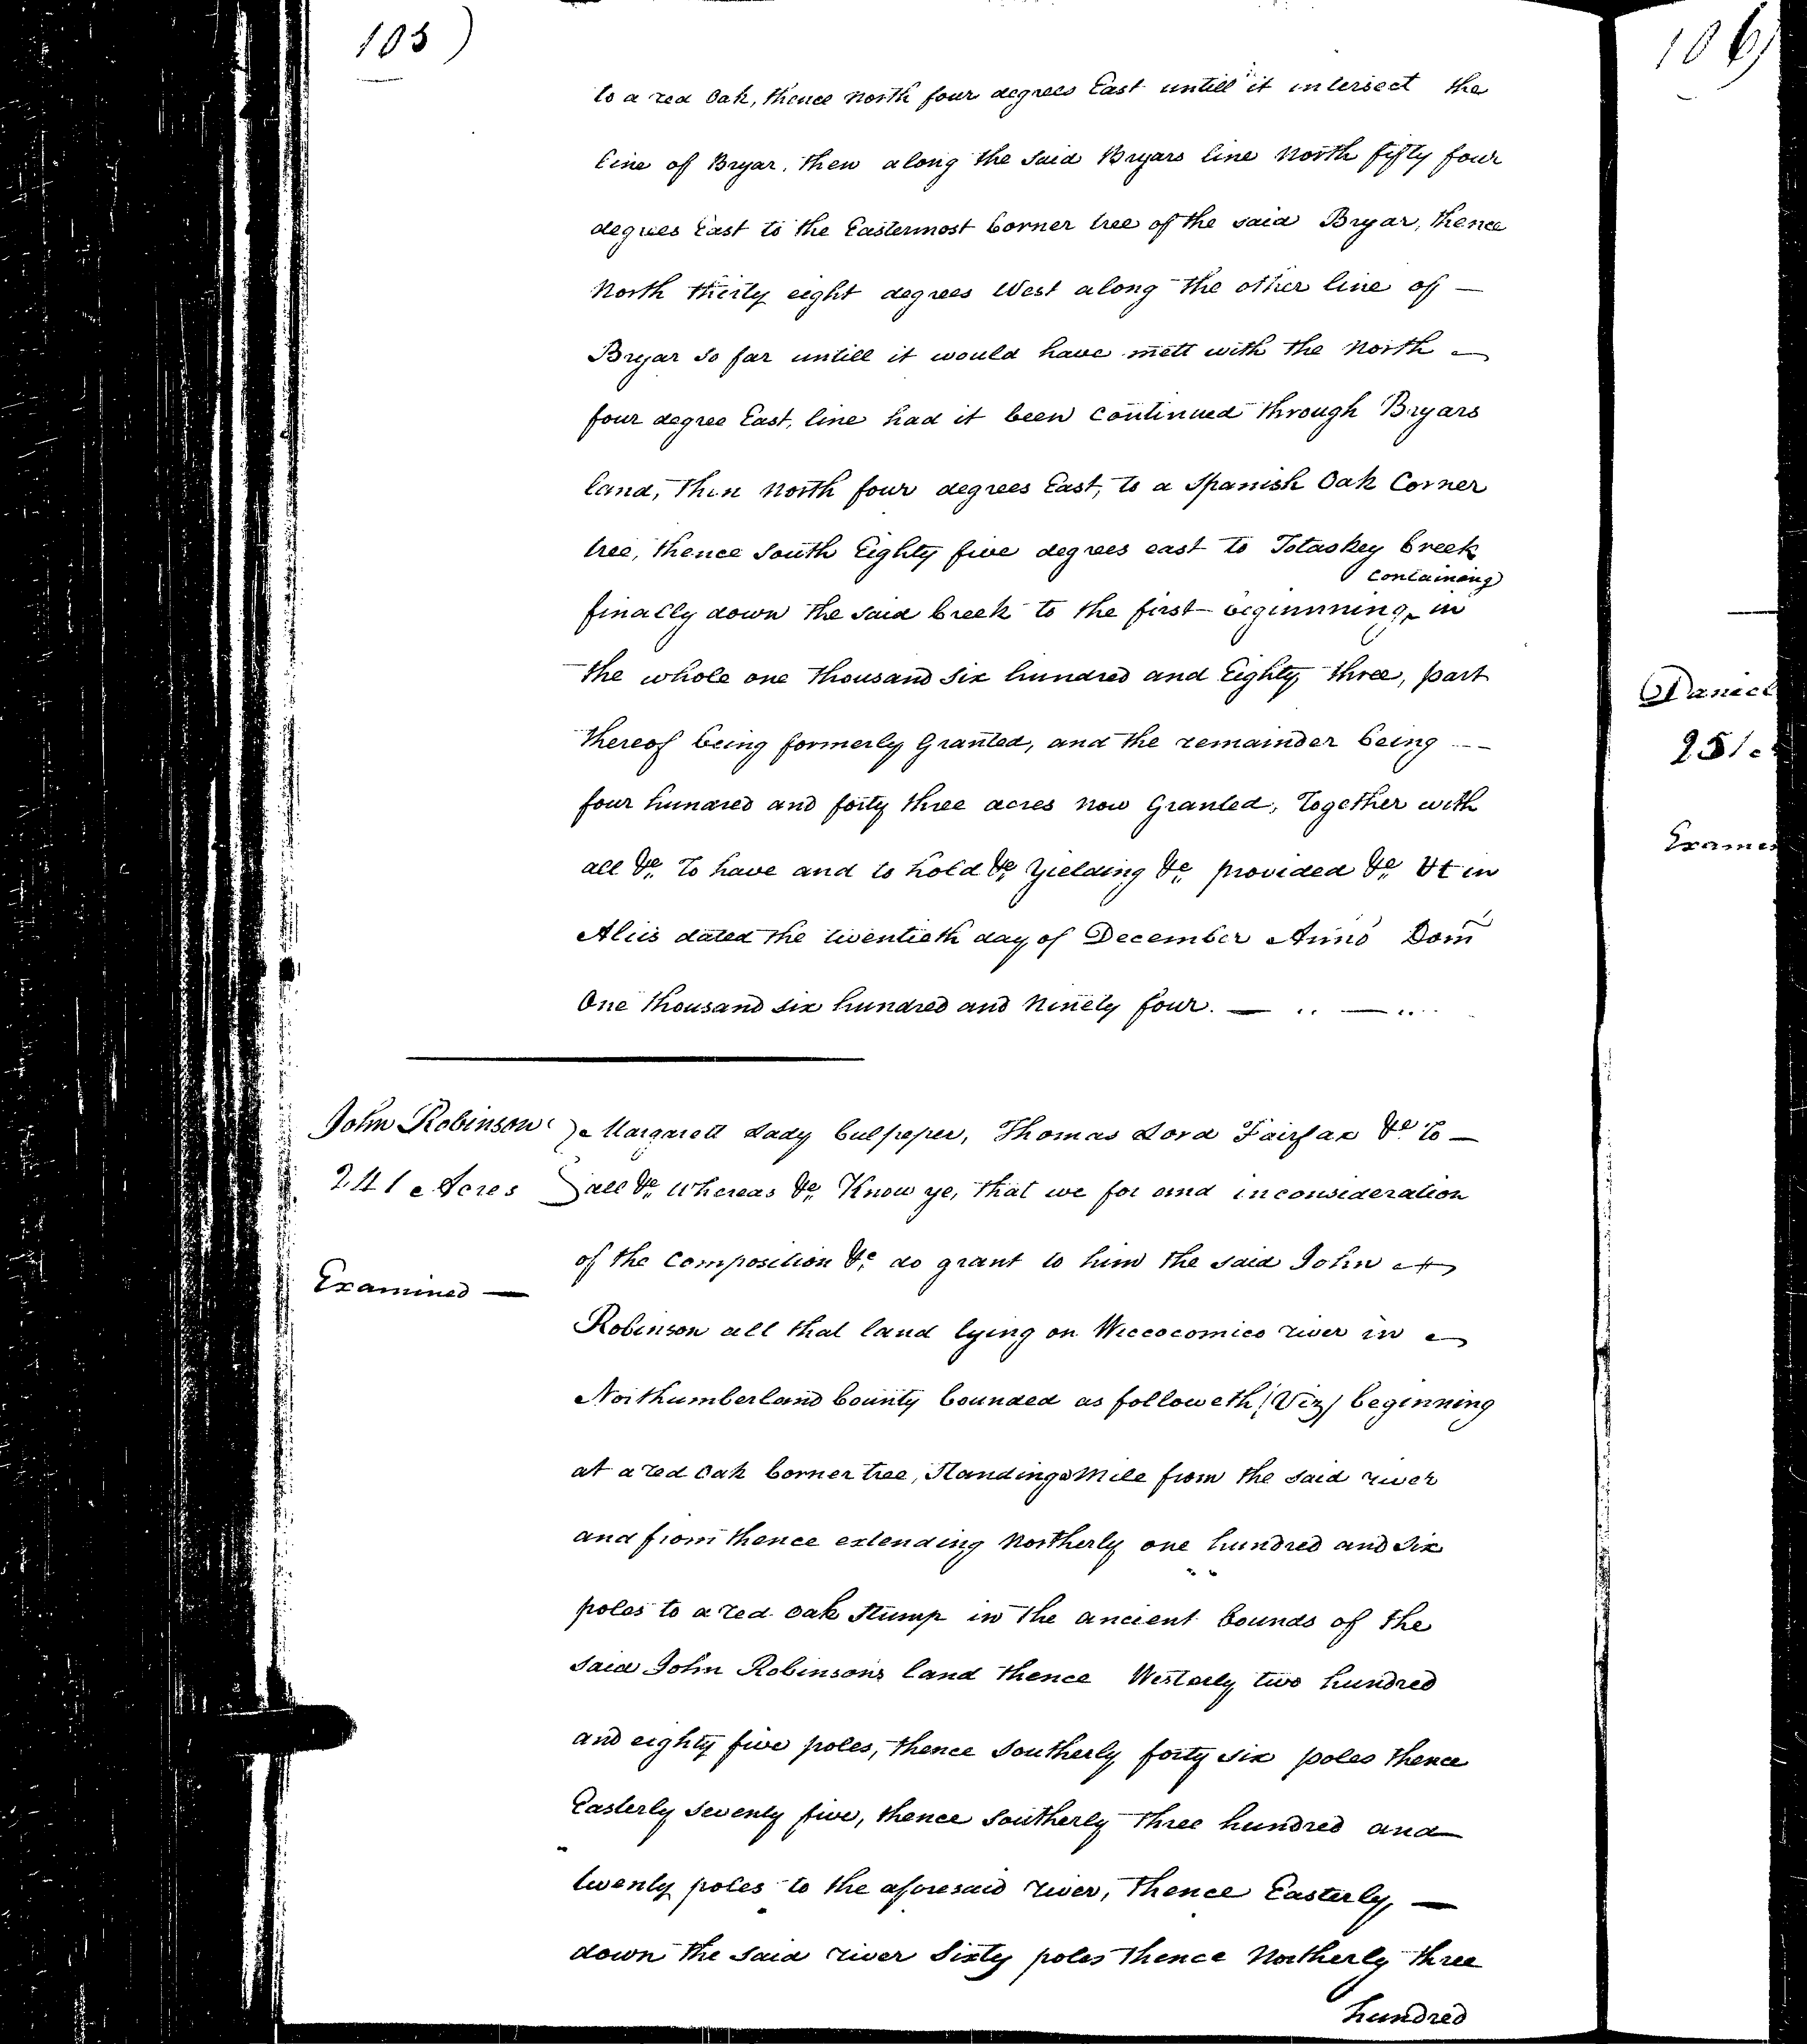 103)
to a red Oak, thence North four degrees East untill it intersect the
line of Bryar, then along the said Bryars line North fifty four
degrees East to the Eastermost Corner tree of the said Bryar, thence
North thirty eight degrees West along the other line of —
Bryar so far untill it would have mett with the North —
four degree East, line had it been Continued through Bryars
land, then North four degrees East, to a Spanish Oak Corner
tree, thence South Eighty five degrees east to Totaskey Creek
containing
finally down the said Creek to the first beginnning, in
the whole one thousand six hundred and Eighty three, part
thereof being formerly Granted, and the remainder being —
four hundred and forty three acres now Granted, Together with
all &c. To have and to hold &c. Yielding &c. provided &c. Ut in
Aliis dated the twentieth day of December Anno Dom
One thousand six hundred and Ninety four. —
John Robinson
241 Acres
Examined —
Margarett Lady Culpeper, Thomas Lord Fairfax &c. To —
all &c. Whereas &c. Know ye, that we for and in consideration
of the Composition &c. do grant to him the said John
Robinson all that land lying on Wiccocomico river in
Northumberland County bounded as followeth (Viz) beginning
at a red oak Corner tree, Standing a Mile from the said river
and from thence extending Northerly one hundred and Six
poles to a red oak Stump in the ancient bounds of the
said John Robinsons land thence Westerly two hundred
and eighty five poles, thence Southerly forty six poles thence
Easterly Seventy five, thence Southerly three hundred and
twenty poles to the aforesaid river, Thence Easterly, —
down the said river Sixty poles thence Northerly three
hundred
106)
Daniel
251
Exami